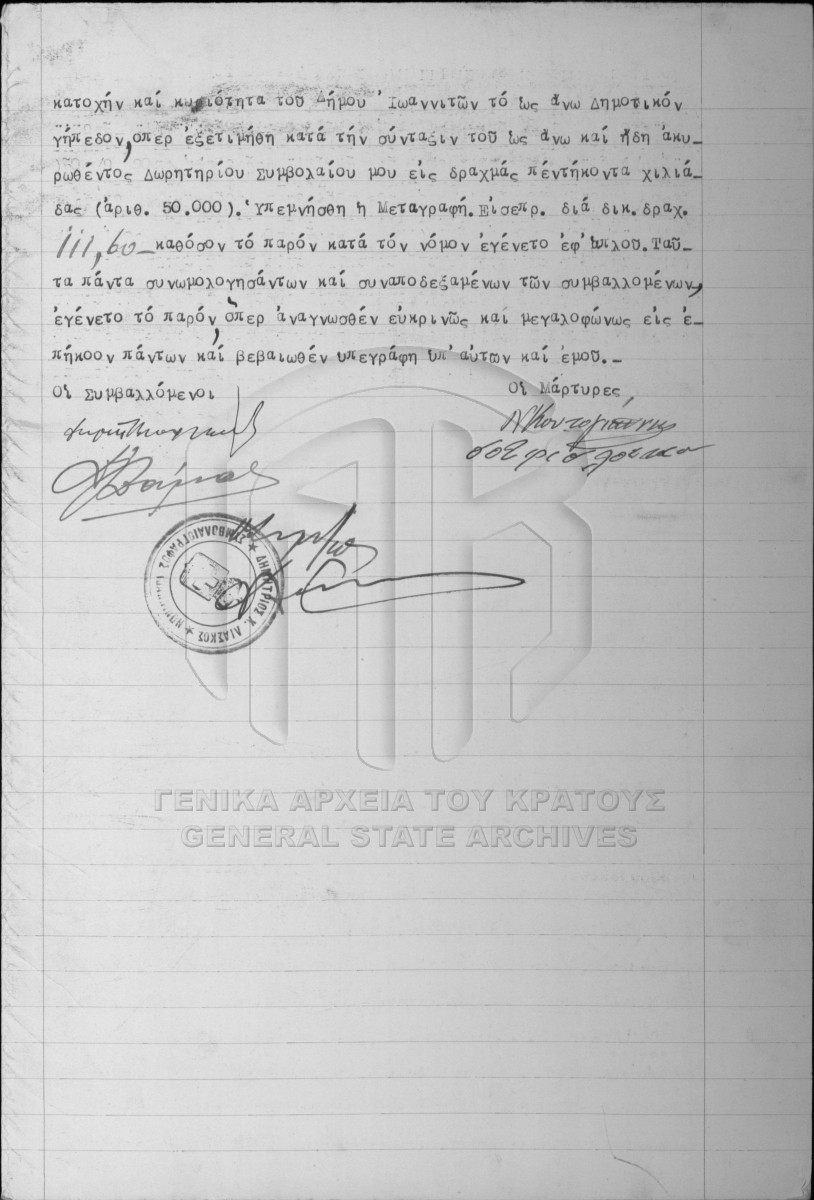 κατοχήν καί κυριότητα τοῦ Δήμου Ἰωαννιτῶν τό ὡς ἄνω Δημοτικόν
γήπεδον, ὅπερ ἐξετιμήθη κατά τήν σύνταξιν τοῦ ὡς ἄνω καί ἤδη ἀκυ-
ρωθέντος Δωρητηρίου Συμβολαίου μου εἰς δραχμάς πεντήκοντα χιλιά-
δας (ἀριθ. 50.000). Ὑπεμνήσθη ἡ Μεταγραφή. Εἰσεπρ. διά δικ. δραχ.
111,60 – καθόσον τό παρόν κατά τόν νόμον ἐγένετο ἐφ' ἁπλοῦ. Ταῦ-
τα πάντα συνωμολογησάντων καί συναποδεξαμένων τῶν συμβαλλομένων,
ἐγένετο τό παρόν, ὅπερ ἀναγνωσθέν εὐκρινῶς καί μεγαλοφώνως εἰς ἐ-
πήκοον πάντων καί βεβαιωθέν ὑπεγράφη ὑπ' αὐτῶν καί ἐμοῦ. –
Οἱ Συμβαλλόμενοι Οἱ Μάρτυρες
ΣΥΜΒΟΛΑΙΟΓΡΑΦΟΣ ★ ΔΗΜΗΤΡΙΟΣ Χ. ΛΙΑΣΚΟΣ ★
ΓΕΝΙΚΑ ΑΡΧΕΙΑ ΤΟΥ ΚΡΑΤΟΥΣ
GENERAL STATE ARCHIVES